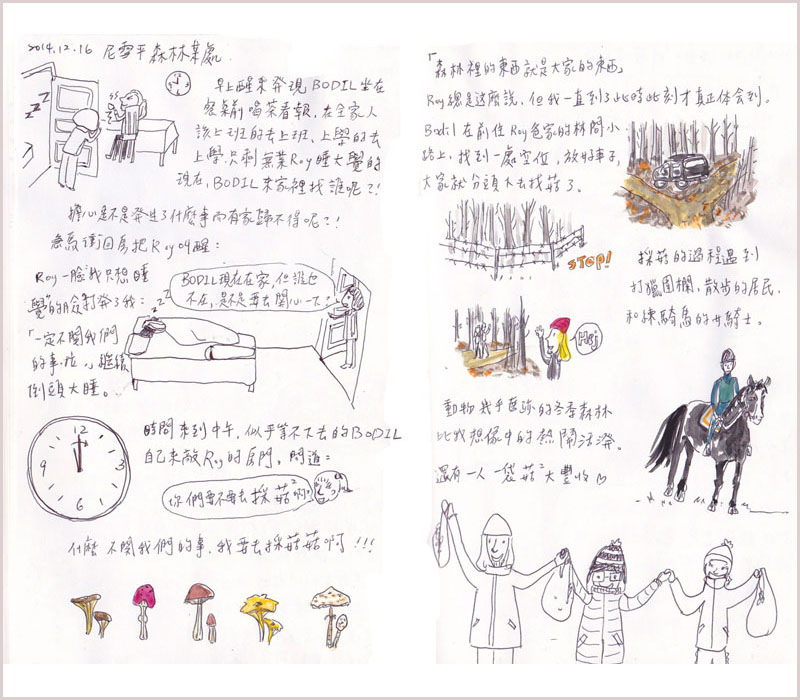 2014.12.16 尼雪平 森林某處
早上醒來發現 BODIL 坐在
餐桌前喝茶看報，在全家人
該上班的去上班、上學的去
上學，只剩無業Roy睡大覺的
現在，BODIL來家裡找誰呢?!
擔心是不是發生了什麼事而有家歸不得呢?!
急急衝回房把Roy叫醒：
Roy一臉我只想睡
覺的臉打發了我：
BODIL現在在家，但誰也
不在，是不是要去關心一下?
「一定不關我們
的事啦。」繼續
倒頭大睡。
zzz
zzz
12
3
6
9
時間來到中午，似乎等不下去的BODIL
自己來敲Roy的房門，問道：
你們要不要去採菇菇啊?
什麼不關我們的事，我要去採菇菇啊!!!
「森林裡的東西就是大家的東西」
Roy總是這麼說，但我一直到了此時此刻才真正体會到。
Bodil在前往Roy爸家的林間小
路上，找到一處空位，放好車子，
大家就分頭下去找菇了。
STOP!
採菇的過程遇到
打獵圍欄，散步的居民，
和練騎馬的女騎士。
Hej
動物幾乎匿跡的冬季森林
比我想像中的熱鬧活潑。
還有一人一袋菇菇大豐收♡